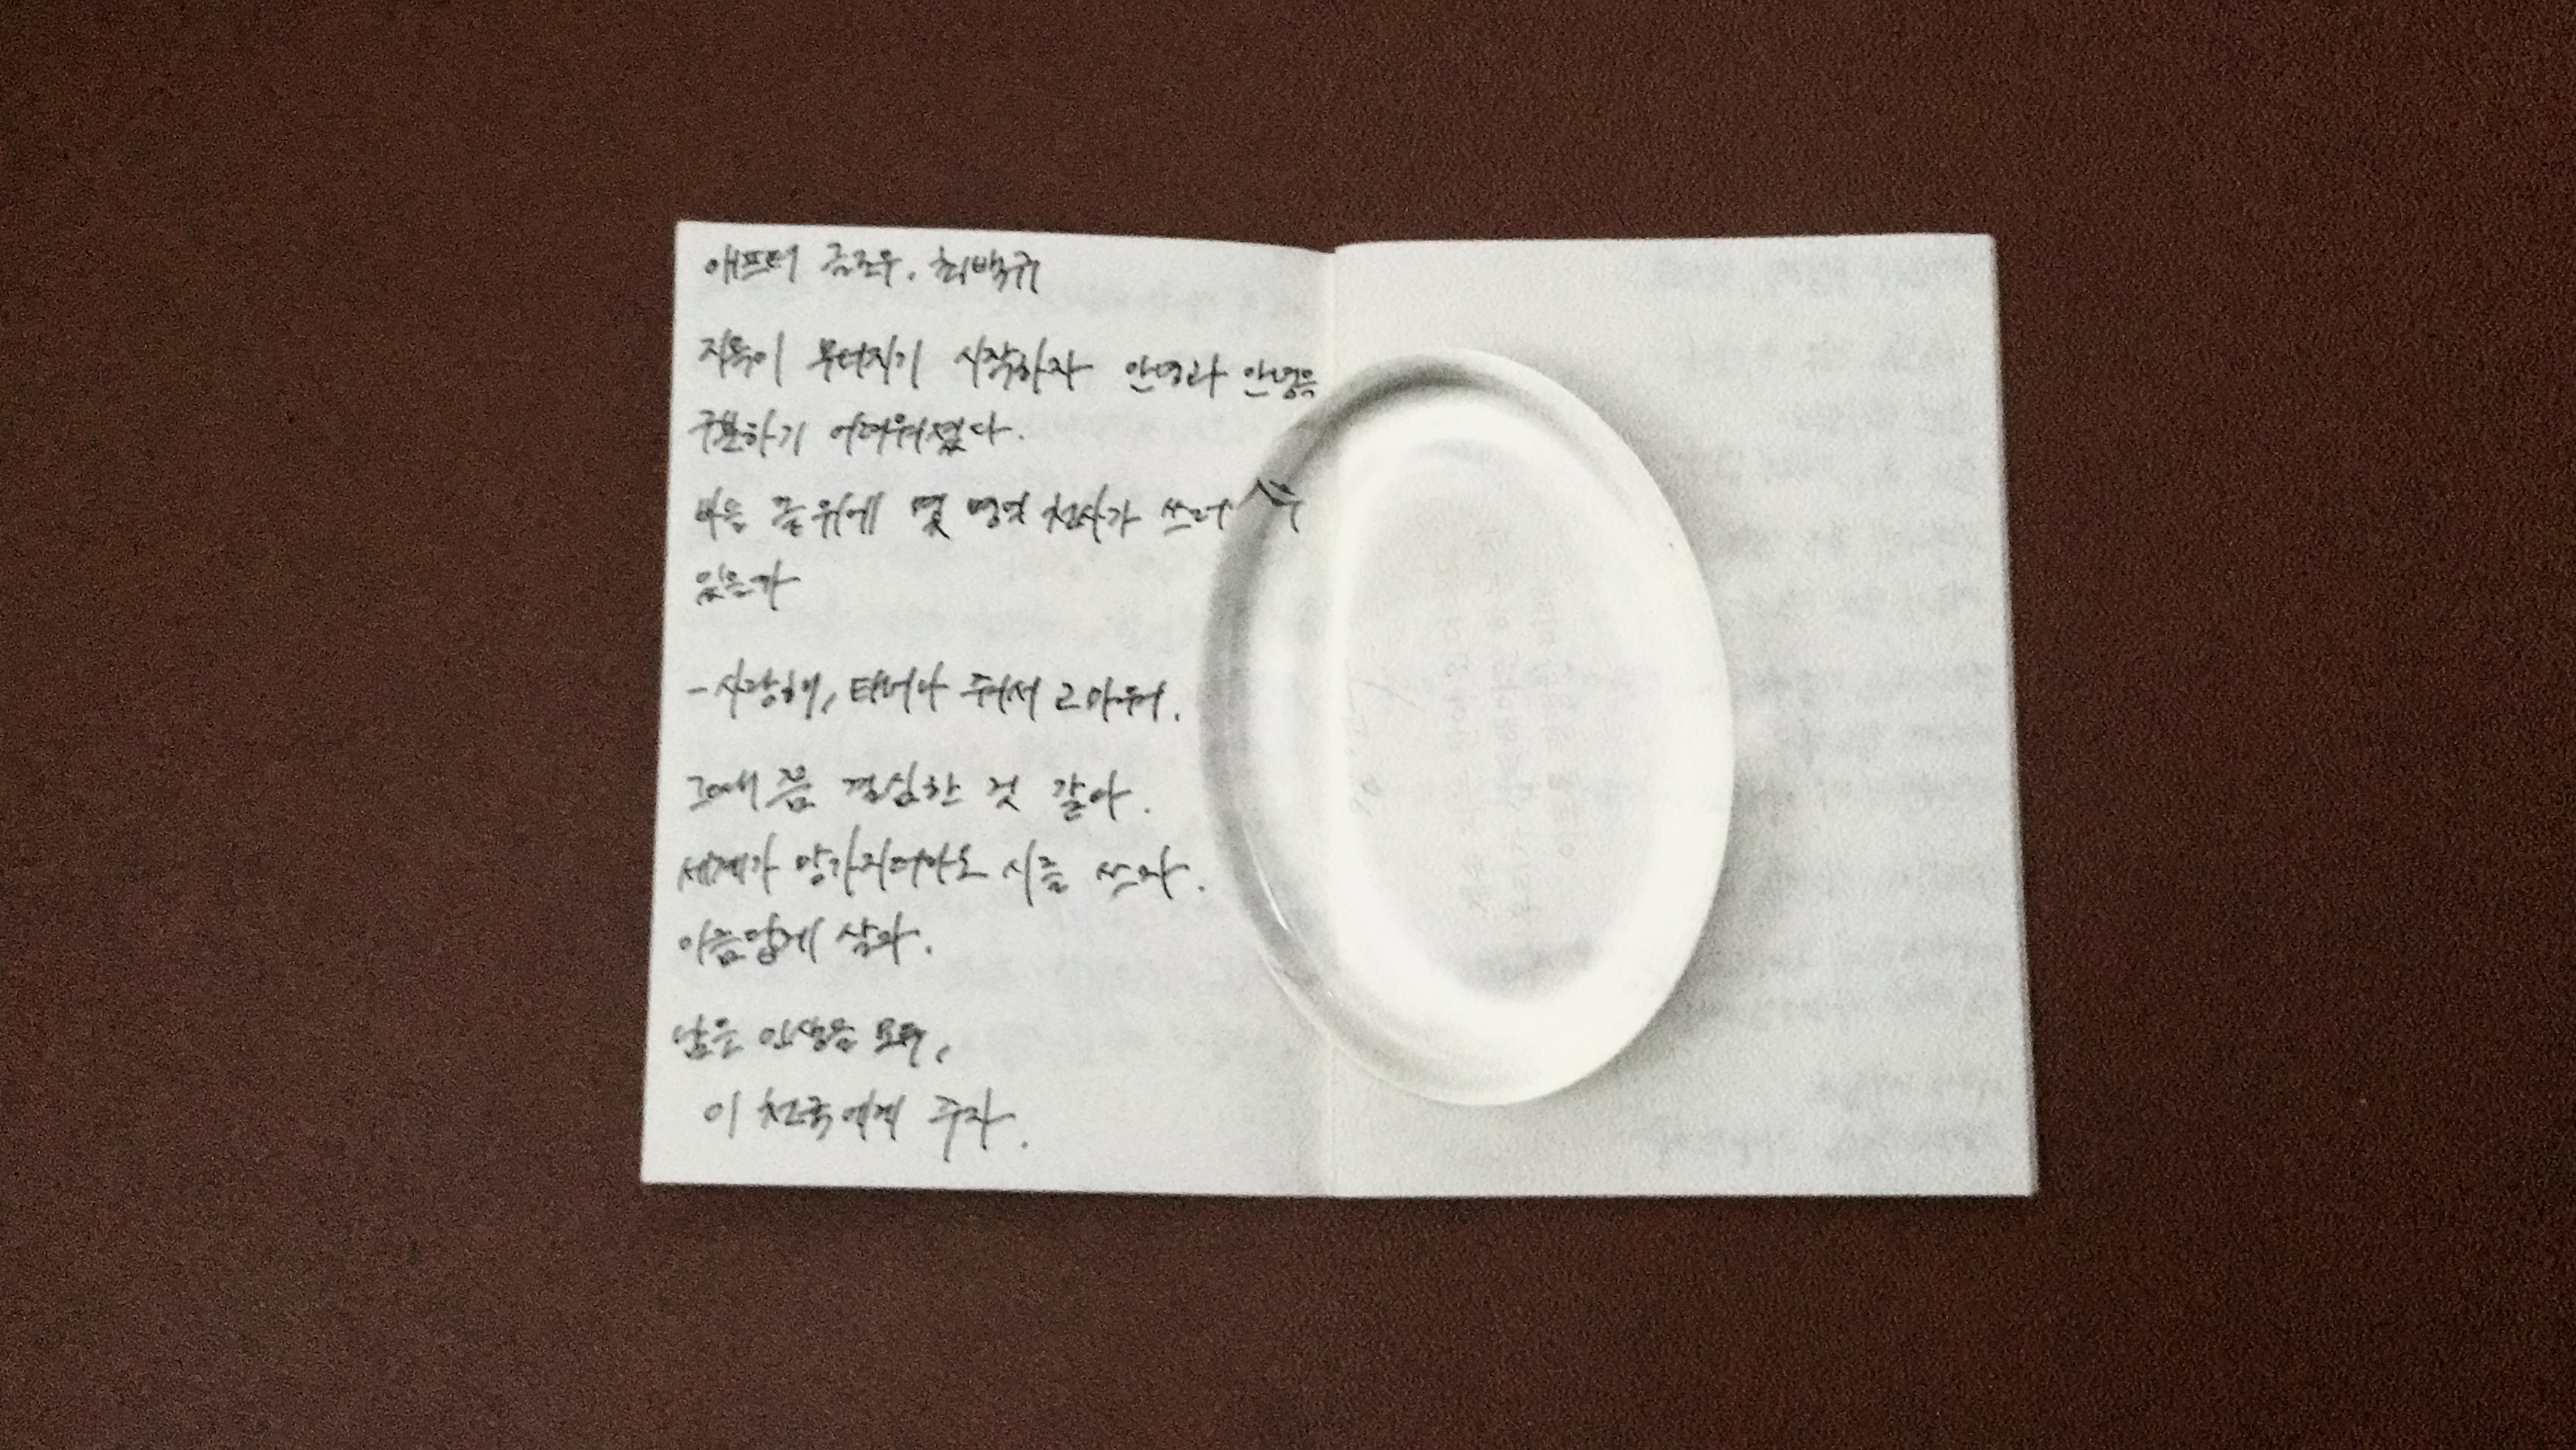 애프터 글로우. 최백규
지옥이 무너지기 시작하자 안녕과 안녕을
구분하기 어려워졌다.
바늘 끝 위에 몇 명의 천사가 쓰러질 수
있는가
- 사랑해, 태어나 줘서 고마워.
그때쯤 결심한 것 같아.
세계가 망가지더라도 시를 쓰자.
아름답게 살자.
남은 인생을 모두,
이 천국에게 주자.